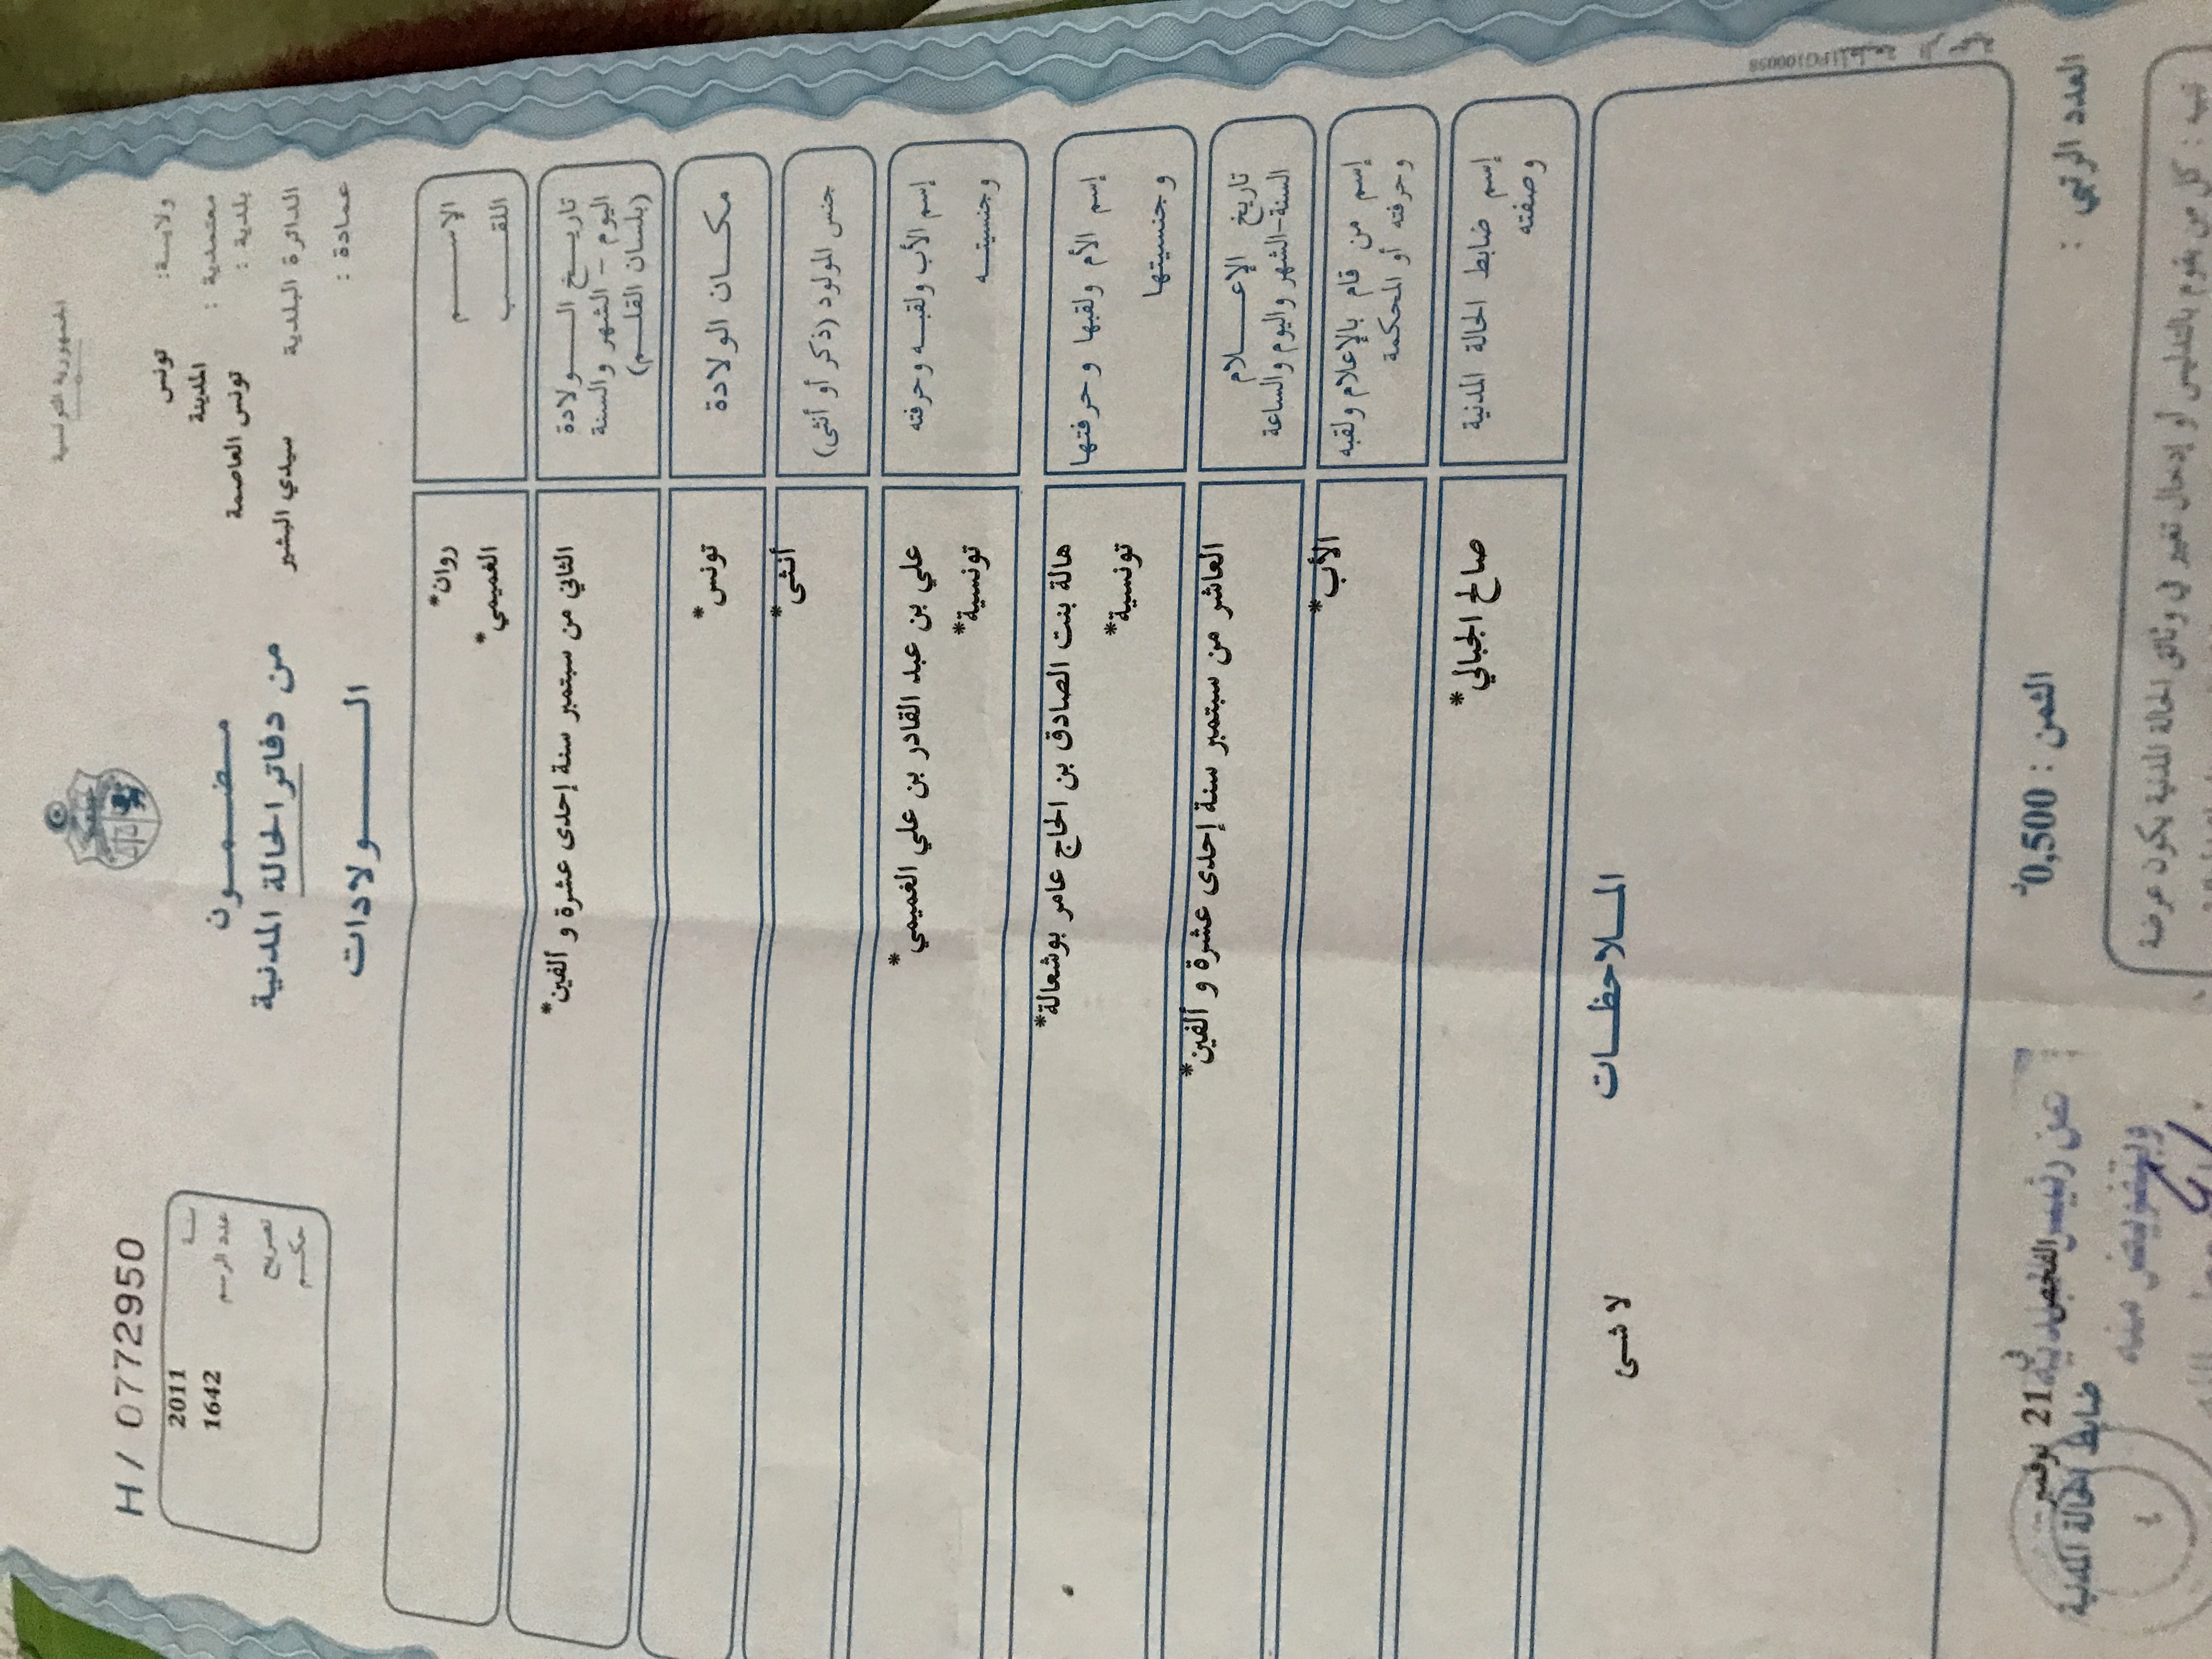 الجمهورية التونسية
H / 0772950
ولاية: تونس
معتمدية : المدينة
بلدية : تونس العاصمة
الدائرة البلدية سيدي البشير
عمادة :
مضمون
من دفاتر الحالة المدنية
الولادات
سنة 2011
عدد الرسم 1642
تصريح
حكم
الاسم روان*
اللقب الغميمي*
تاريخ الولادة
اليوم - الشهر والسنة
(بلسان القلم)
الثاني من سبتمبر سنة إحدى عشرة و ألفين*
مكان الولادة تونس*
جنس المولود (ذكر أو أنثى) أنثى*
إسم الأب ولقبه وحرفته علي بن عبد القادر بن علي الغميمي*
وجنسيته تونسية*
إسم الأم ولقبها وحرفتها هالة بنت الصادق بن الحاج عامر بوشعالة*
وجنسيتها تونسية*
تاريخ الإعلام
السنة-الشهر واليوم والساعة
العاشر من سبتمبر سنة إحدى عشرة و ألفين*
إسم من قام بالإعلام ولقبه
وحرفته أو المحكمة
الأب*
إسم ضابط الحالة المدنية
وصفته
صالح الجبالي*
الملاحظات
لا شئ
العدد الرتبي :
الثمن : 0,500د
في 21 نوفمبر
ضابط الحالة المدنية
وبتفويض منه
تنبيه : كل من يقوم بالتدليس أو إدخال تغيير في وثائق الحالة المدنية يكون عرضة